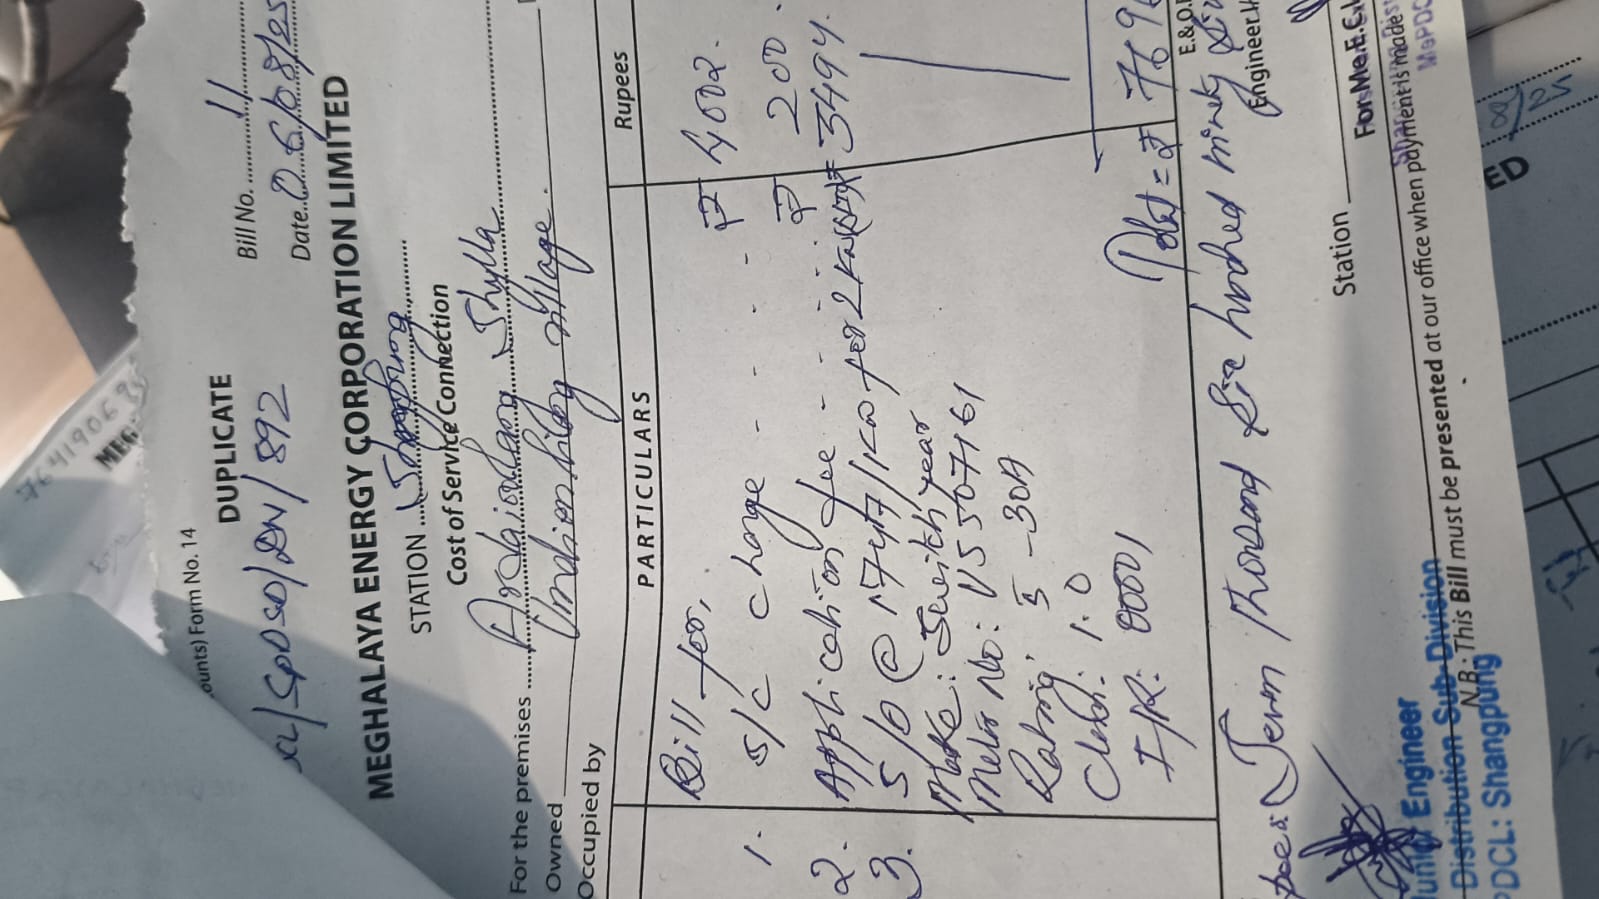 ounts) Form No. 14
DUPLICATE
Bill No. 11
Date 06/08/25
CL/SPDSD/DN/892
MEGHALAYA ENERGY CORPORATION LIMITED
STATION Shangpung
Cost of Service Connection
For the premises Ardaioolang Shylla
Owned Umdienhilong village.
Occupied by
PARTICULARS Rupees
Bill for,
1. S/C charge - - - - ₹ 4002.
2. Application fee - - - ₹ 200.
3. S/D @ 1747/KW for 2KW ₹ 3494.
Make: Switchgear
Meter No: VS 507161
Rating: 5-30A
I/R: 00001
Total = ₹ 769
E.&O.E
Rupees: Seven Thousand Six hundred ninety Six
Engineer
Station
For Me.E.C.L
Junior Engineer
Distribution Sub-Division
PDCL: Shangpung
N.B.: This Bill must be presented at our office when payment is made
MePDC
MEG
ED